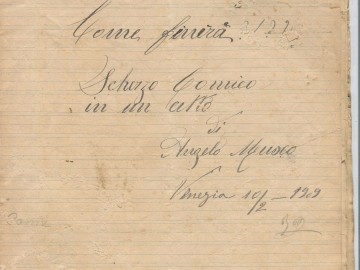 Come finirà???
Scherzo Comico
in un atto
di
Angelo Musco
Venezia 10/2 - 1909